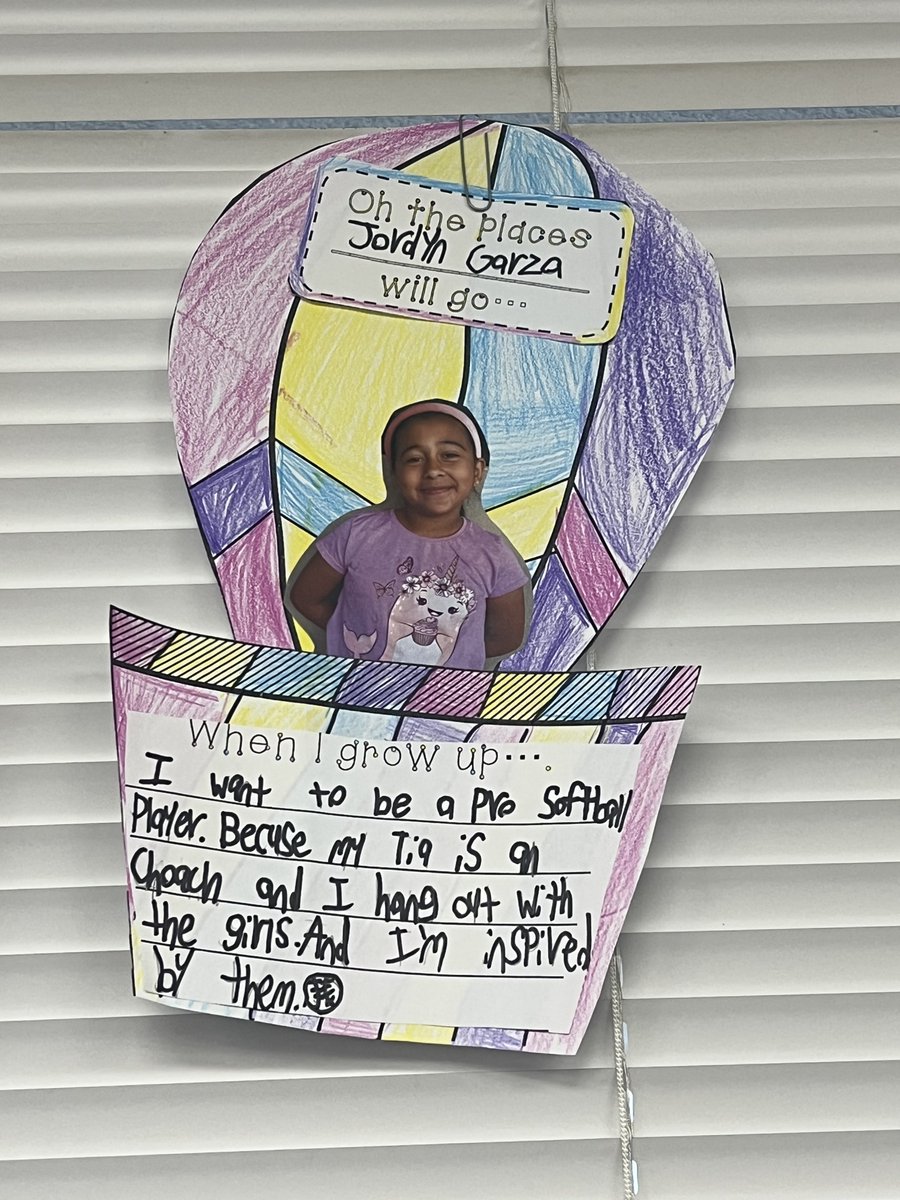 Oh the places
Jordyn Garza
will go...
When I grow up....
I want to be a Pro Softball
Player. Becuse my Tia is an
Choach and I hang out with
the girls. And I'm inspired
by them.